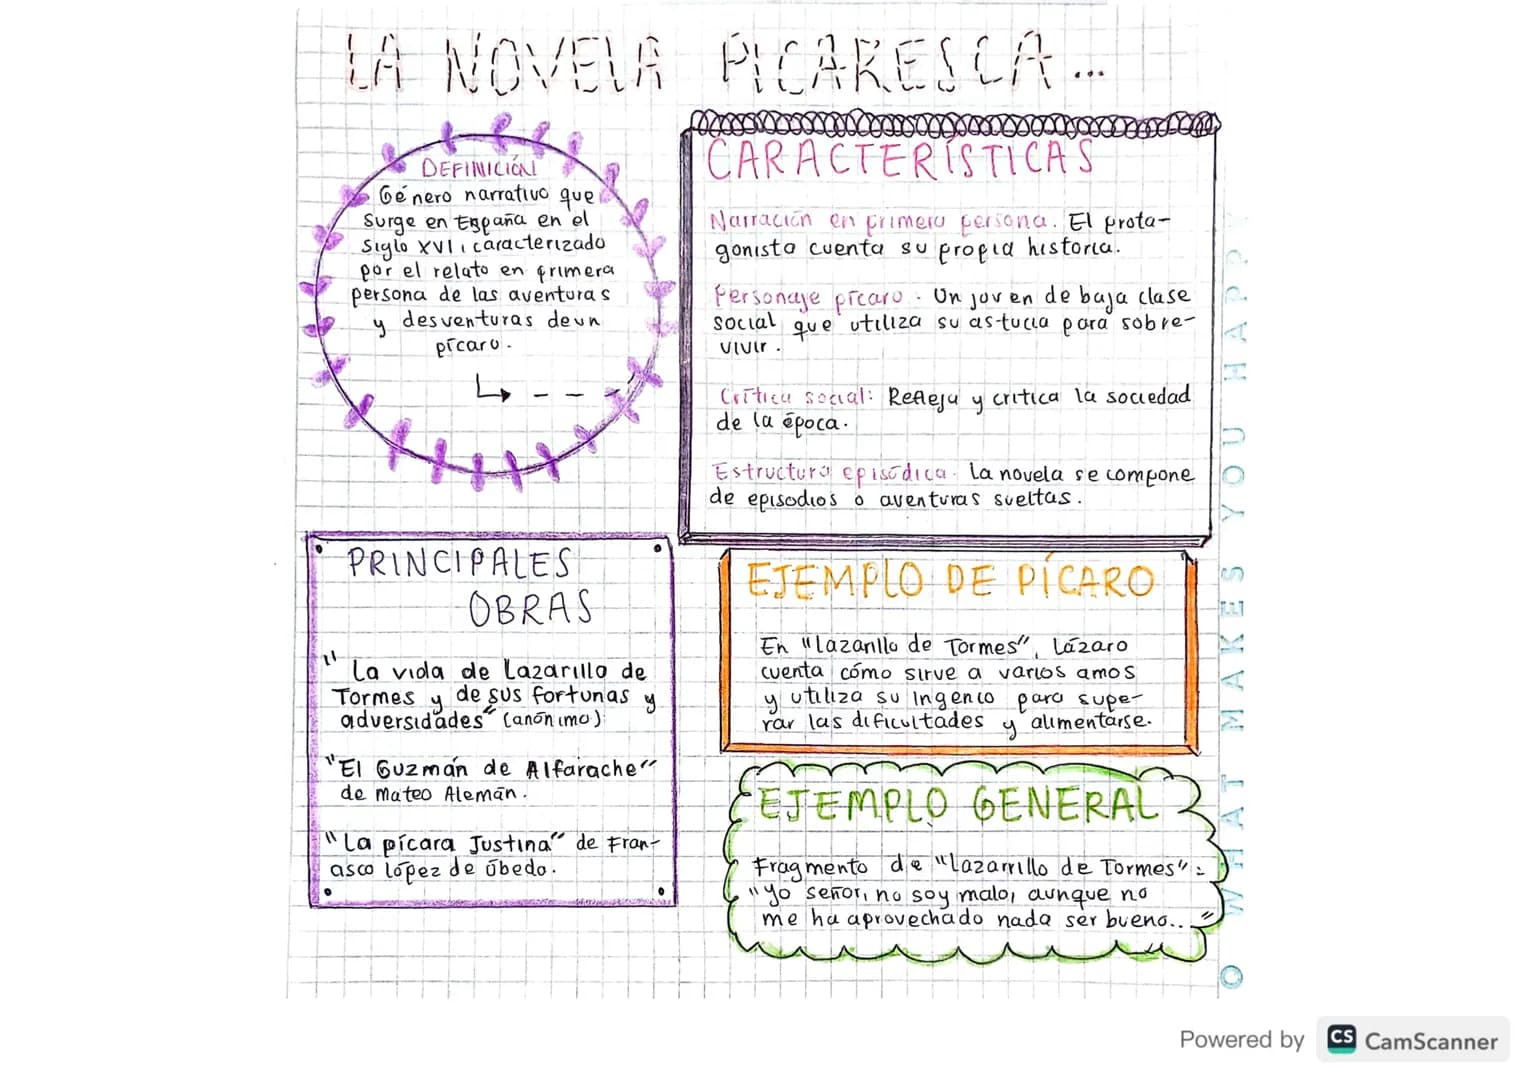 LA NOVELA PICARESCA...
DEFINICIÓN
Género narrativo que
surge en España en el
siglo XVI, caracterizado
por el relato en primera
persona de las aventuras
y desventuras de un
pícaro.
CARACTERÍSTICAS
Narración en primera persona. El prota-
gonista cuenta su propia historia.
Personaje pícaro. Un joven de baja clase
social que utiliza su astucia para sobre-
vivir.
Crítica social: Refleja y critica la sociedad
de la época.
Estructura episódica. La novela se compone
de episodios o aventuras sueltas.
PRINCIPALES
OBRAS
"La vida de Lazarillo de
Tormes y de sus fortunas y
adversidades" (anónimo)
"El Guzmán de Alfarache"
de Mateo Alemán.
"La pícara Justina" de Fran-
cisco López de Úbedo.
EJEMPLO DE PÍCARO
En "Lazarillo de Tormes", Lázaro
cuenta cómo sirve a varios amos
y utiliza su ingenio para supe-
rar las dificultades y alimentarse.
EJEMPLO GENERAL
Fragmento de "Lazarrillo de Tormes":
"Yo señor, no soy malo, aunque no
me ha aprovechado nada ser bueno..."
O WHAT MAKES YOU HAPPY
Powered by CS CamScanner